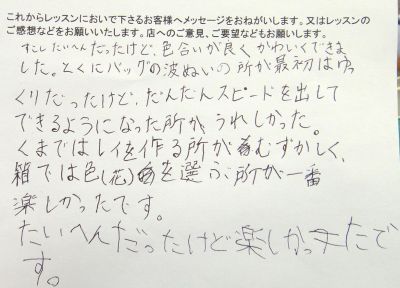 これからレッスンにおいで下さるお客様へメッセージをおねがいします。又はレッスンの
ご感想などをお願いいたします。店へのご意見、ご要望などもお願いします。
すこしたいへんだったけど、色合いが良く、かわいくできま
した。とくにバッグの波ぬいの所が最初はゆっ
くりだったけど、だんだんスピードを出して
できるようになった所が、うれしかった。
くまではレイを作る所がむずかしく、
箱では色(花)を選ぶ所が一番
楽しかったです。
たいへんだったけど楽しかったで
す。